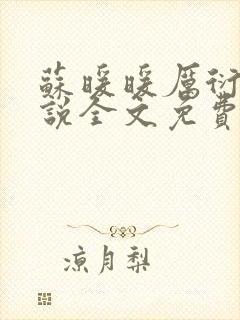 蘇暖暖厲衍
說全文免費
涼月梨